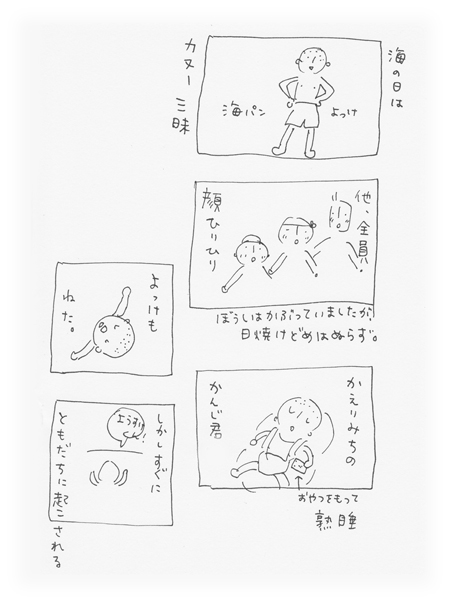 海の日は
カヌー三昧
海パン
よっけ
他、全員
顔ひりひり
ぼうしはかぶっていましたが、
日焼けどめはぬらず。
かえりみちの
かんじ君
おやつをもって
熟睡
よっけも
ねた。
しかしすぐに
ともだちに起こされる